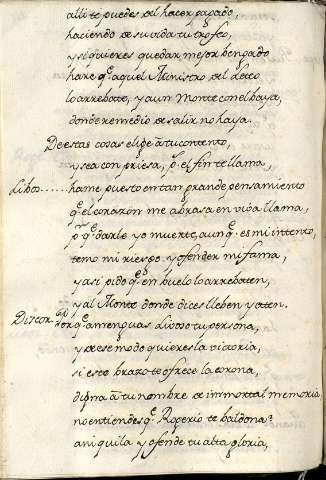 alli te puedes del hacer pagado,
haciendo de su vida tu trofeo,
y si quieres quedar mejor bengado
haré q. aquel Ministro del Leteo
lo arrebate, y a un Monte con el baya,
donde remedio de salir no haya.
De estas cosas elige à tu contento,
y sea con priesa, q. el fin te llama,
Libo...... hame puesto en tan grande pensamiento
q. el corazon me abrasa en viva llama,
q. darle yo muerte, aunq. es mi intento,
temo mi riesgo y ofender mi fama,
y asi pido q. en buelo lo arrebaten,
y al Monte donde dices lleben y aten.
Discor. q. amenguas Liboso tu persona,
y de ese modo quieres la victoria,
si este brazo te ofrece la corona,
digna à tu nombre de immortal memoria,
no entiendes q. Rogerio te baldona?
aniquila y ofende tu alta gloria,